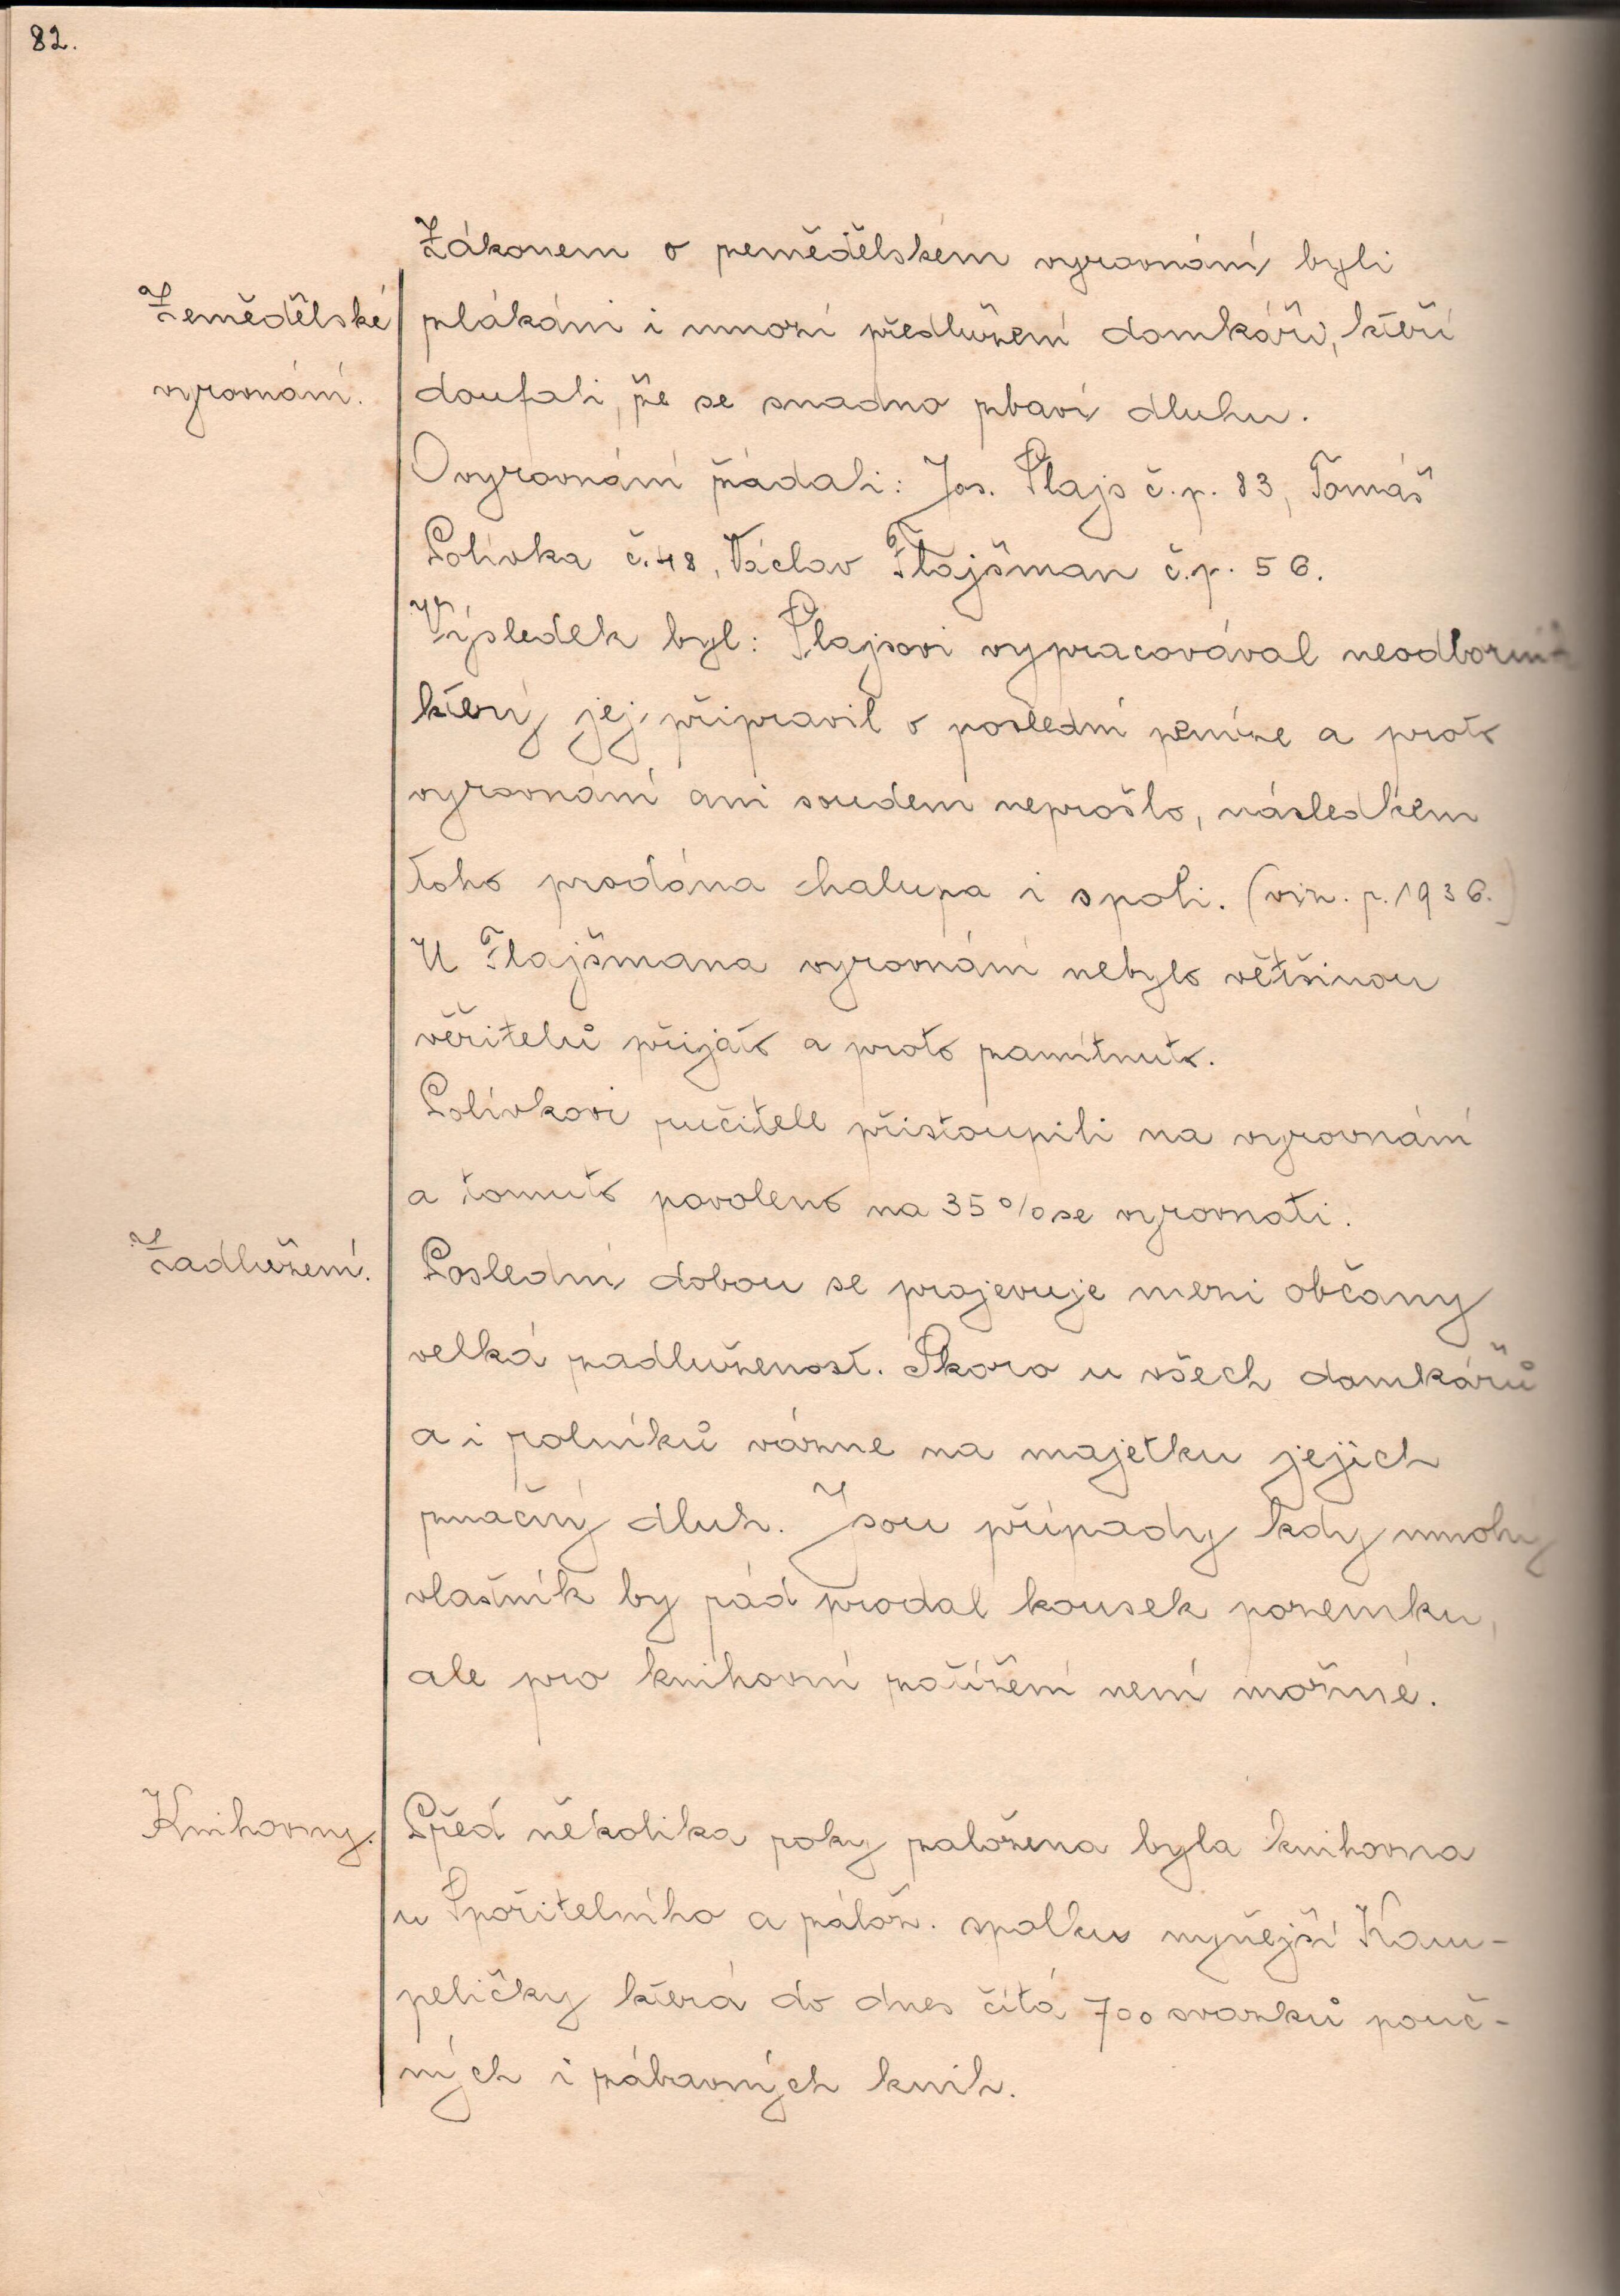 82.
Zákonem o zemědělském vyrovnání byli
Zemědělské
vyrovnání.
zlákáni i mnozí předlužení domkáři, kteří
doufali, že se snadno zbaví dluhu.
O vyrovnání žádali: Jos. Šlajs č.p. 83, Tomáš
Polívka č. 48, Václav Flajšman č.p. 56.
Výsledek byl: Šlajsovi vypracovával neodborník
který jej připravil o poslední peníze a proto
vyrovnání ani soudem neprošlo, následkem
toho prodána chalupa i s poli. (viz. r. 1936.)
U Flajšmana vyrovnání nebylo většinou
věřitelů přijato a proto zamítnuto.
Polívkovi ručitelé přistoupili na vyrovnání
a tomuto povoleno na 35% se vyrovnati.
Zadlužení.
Poslední dobou se projevuje mezi občany
velká zadluženost. Skoro u všech domkářů
a i rolníků vázne na majetku jejich
značný dluh. Jsou případy kdy mnohý
vlastník by rád prodal kousek pozemku,
ale pro knihovní zatížení není možné.
Knihovny.
Před několika roky založena byla knihovna
u Spořitelního a zálož. spolku nynější Kam-
peličky která do dnes čítá 700 svazků pouč-
ných i zábavných knih.